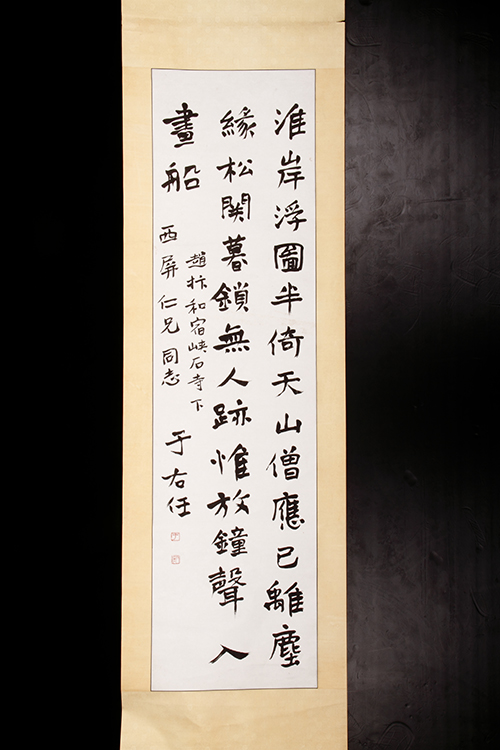 淮岸浮圖半倚天山僧應已離塵
緣松關暮鎖無人跡惟放鐘聲入
畫船
趙抃和宿峽石寺下
西屏仁兄同志
于右任